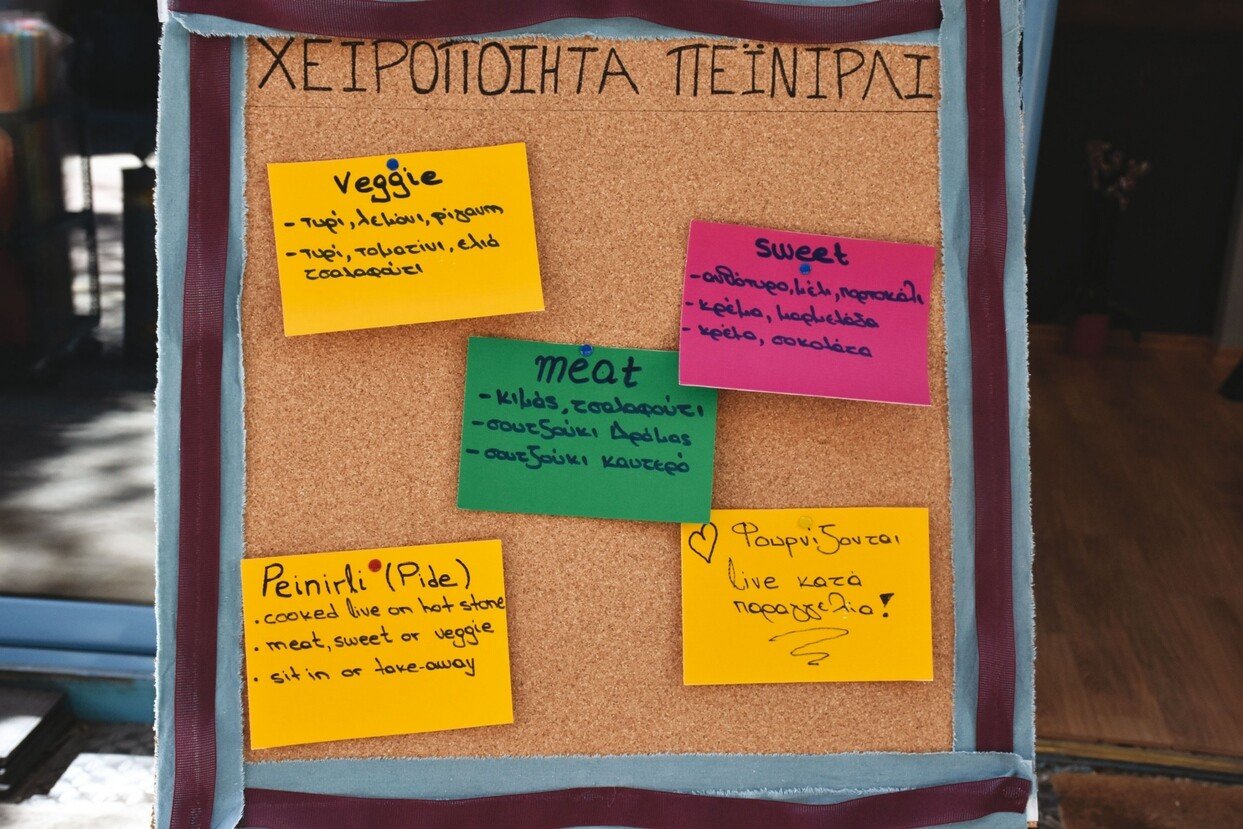 ΧΕΙΡΟΠΟΙΗΤΑ ΠΕΪΝΙΡΛΙ
Veggie
- τυρί, λεμόνι, ρίγανη
- τυρί, τοματίνι, ελιά
τσαλαφούτι
sweet
- ανθότυρο, μέλι, πορτοκάλι
- κρέμα, μαρμελάδα
- κρέμα, σοκολάτα
meat
- κιμάς, τσαλαφούτι
- σουτζούκι Δράμας
- σουτζούκι καυτερό
Peinirli (Pide)
· cooked live on hot stone
· meat, sweet or veggie
· sit in or take-away
♡ Φουρνίζονται
live κατά
παραγγελία!